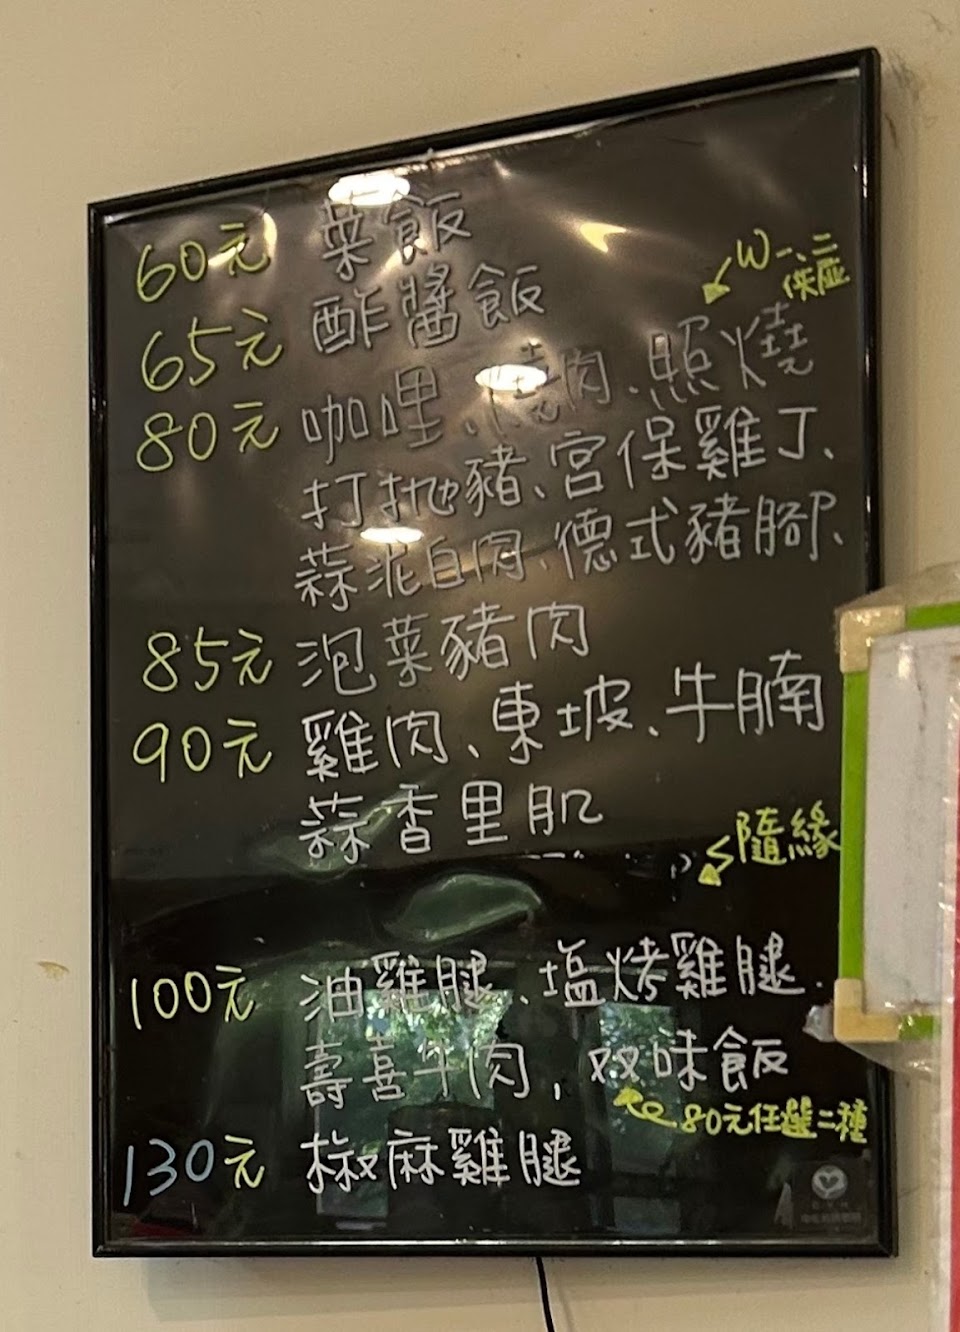 60元 菜飯
W一、二
供應
65元 酢醬飯
80元 咖哩、燒肉、照燒
打拋豬、宮保雞丁、
蒜泥白肉、德式豬腳、
85元 泡菜豬肉
90元 雞肉、東坡、牛腩
蒜香里肌
隨緣
100元 油雞腿、塩烤雞腿.
壽喜牛肉, 双味飯
80元任選二種
130元 椒麻雞腿